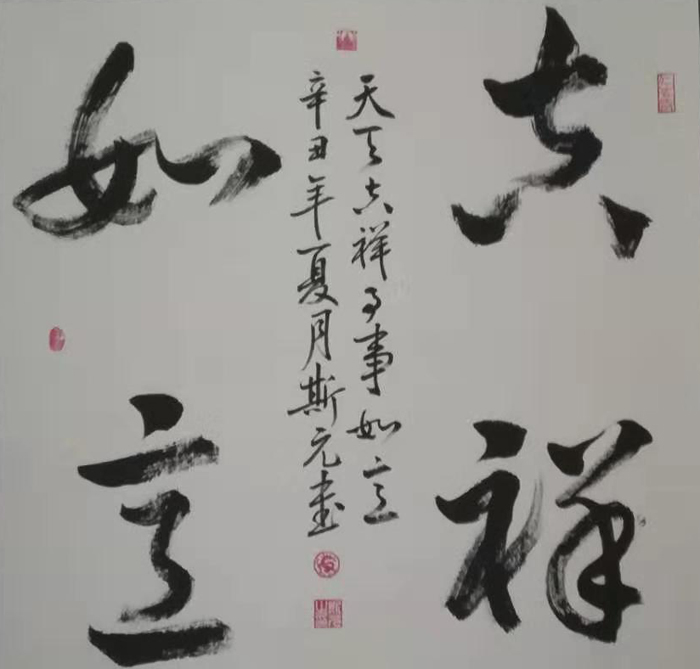 吉祥
如意
天天吉祥事事如意
辛丑年夏月斯元书